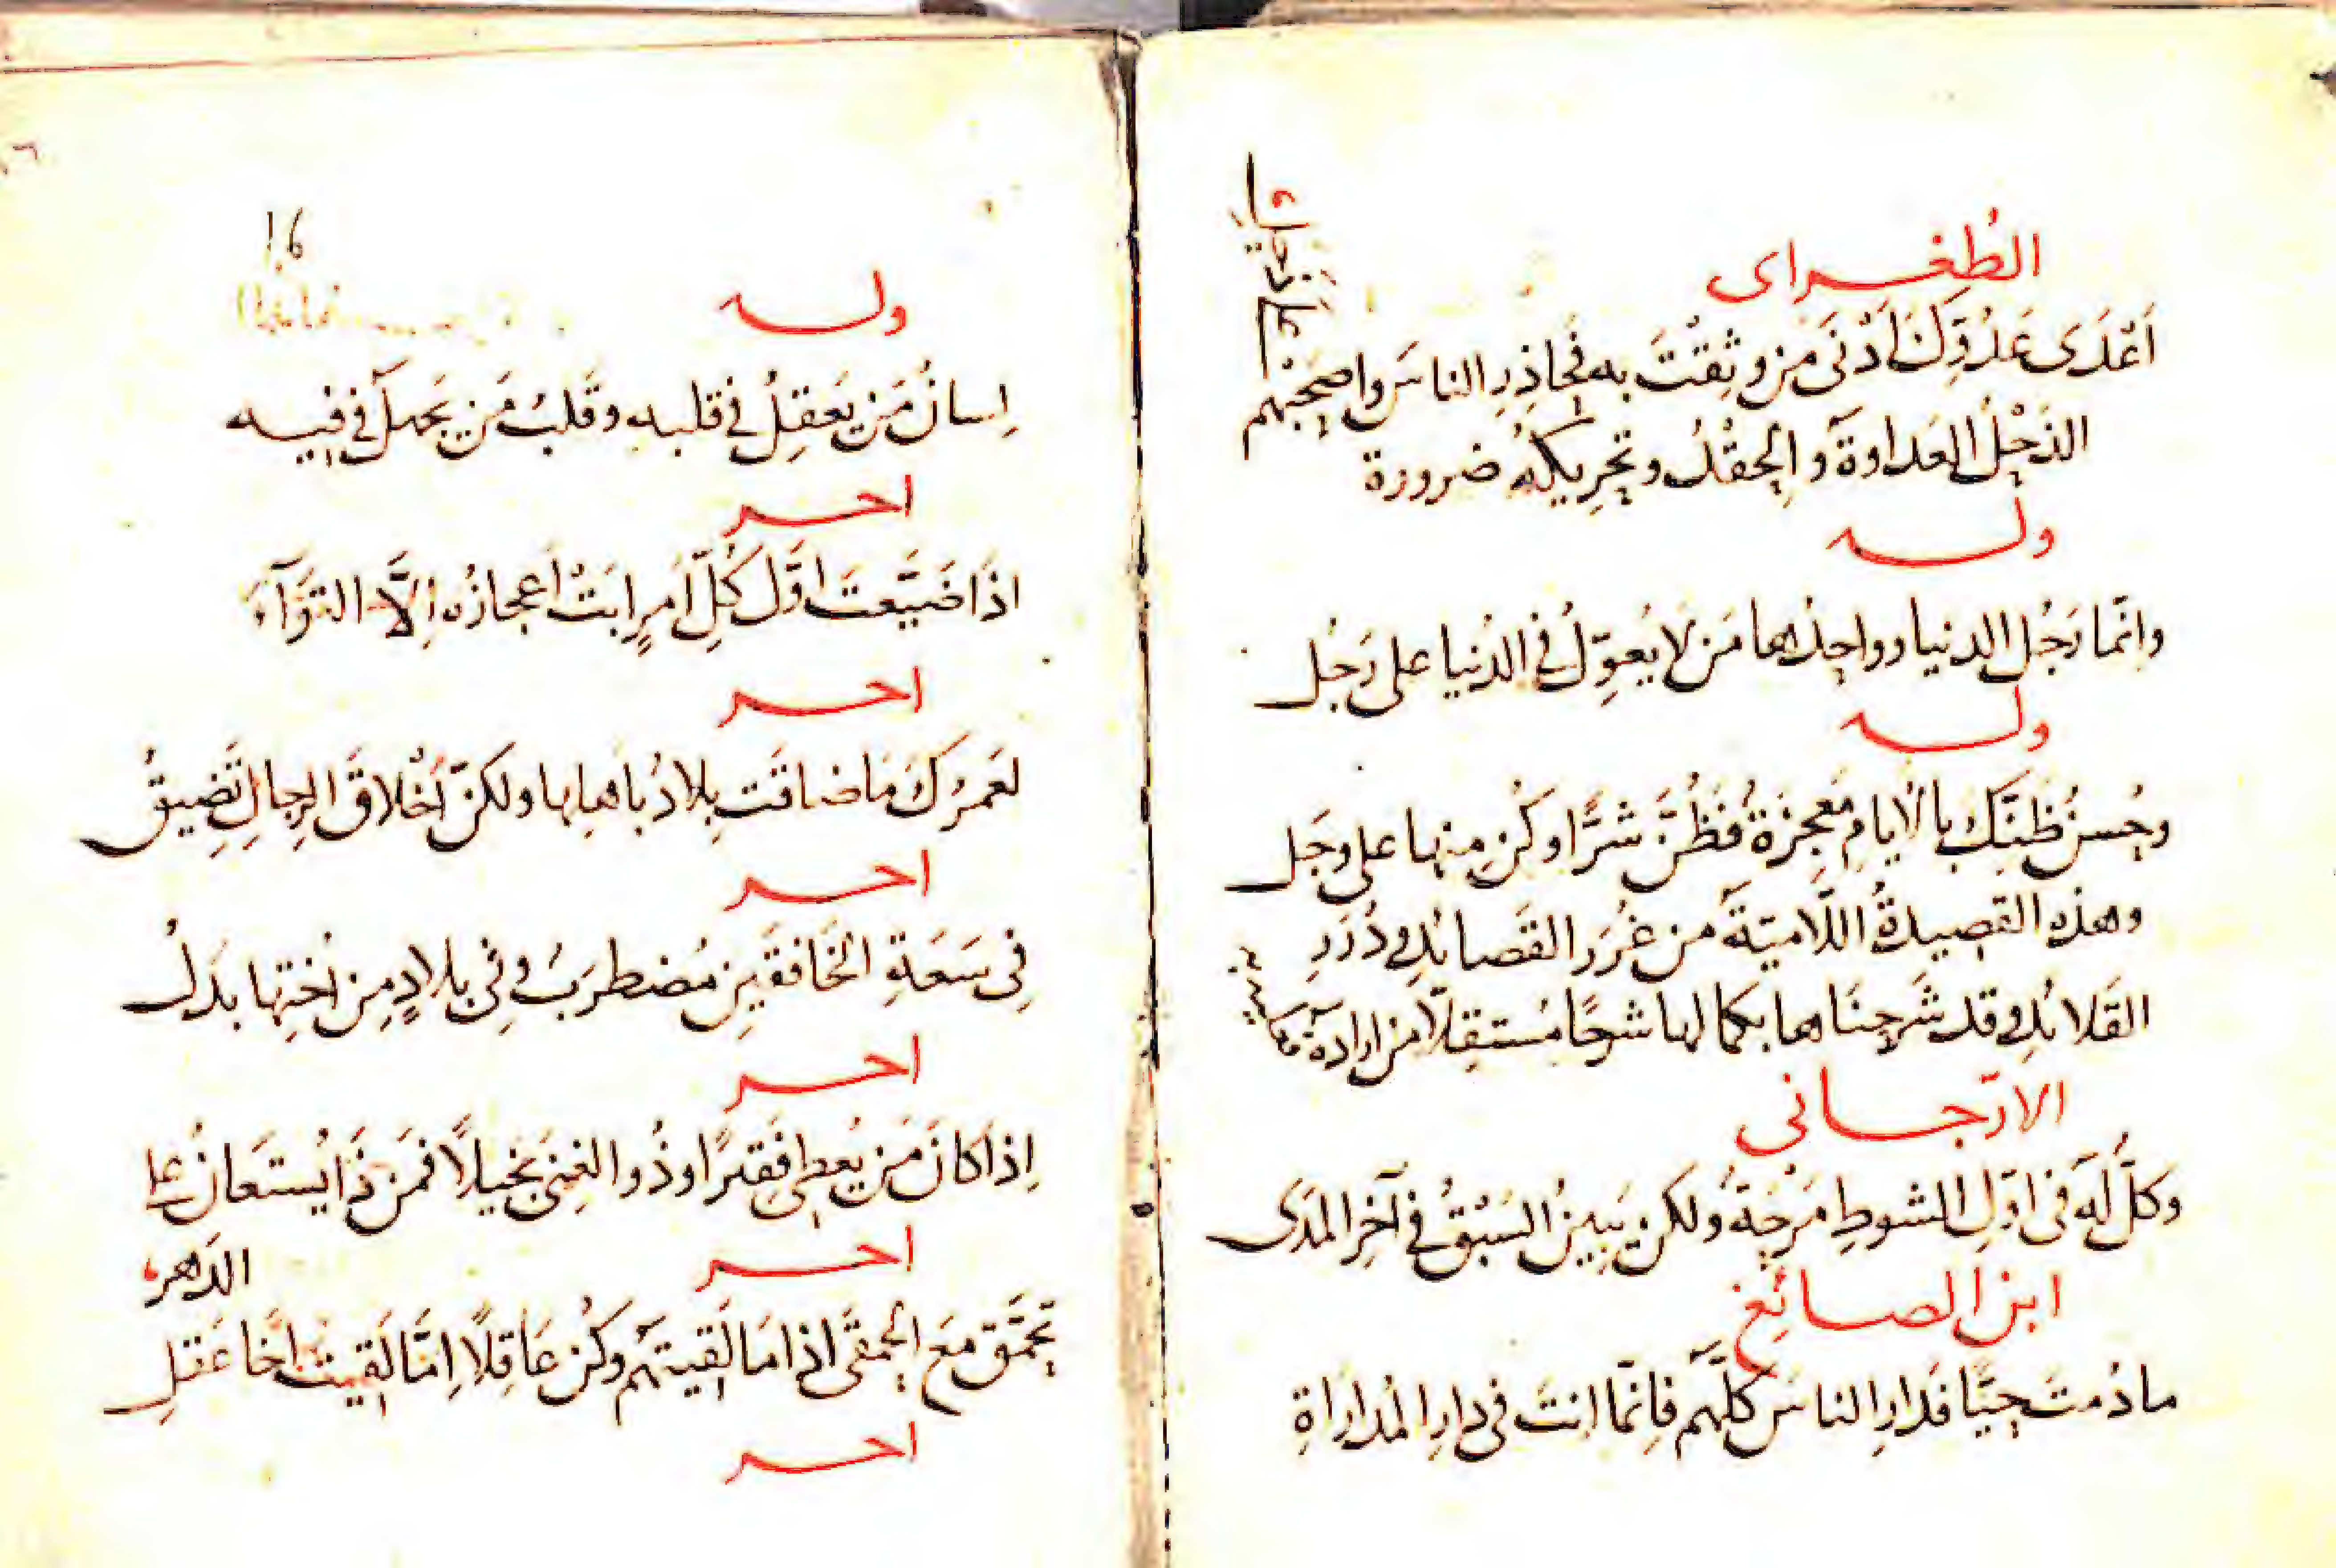 الطُغـراى
اَعْدَى عَدُوِّكَ اَدْنَى مَن وثِقْتَ به فحَاذِرِ الناسَ واصحَبْهم
على دَخل
الذَحْلُ العَداوةَ والحِقْدُ وتحرِيكُه ضرورة
ولـه
وانّما رَجُل الدنيا وواحِدُها مَن لا يُعوِّلُ فى الدُنيا على رَجُل
ولـه
وحُسنُ ظَنِّكَ بالايامِ مَعجِزَةٌ فظُنَّ شرًّا وكُن مِنها على وجَل
وهذه القصِيدةُ اللّاميّةُ من غُرَرِ القَصائدِ ودُرَرِ
القَلائدِ وقد شَرحنَاها بكمالها شرحًا مُستقِلّا من اراده
الارّجـانى
وكلٌّ لَه فى اوّلِ الشوطِ مَرْحَةٌ ولكن يَبِينُ السَبْقُ فى آخرِ المَدَى
ابن الصـائِغ
ما دُمتَ حيًّا فدارِ الناسَ كلَّهم فانّما انتَ فى دارِ المُداراةِ
16
ولـه
لِسانُ مَن يَعقِلُ فى قلبه وقَلبُ مَن يَجهلُ فى فيـه
اخـر
اذَا ضَيَّعتَ اوّل كُلِّ اَمرٍ ابَتْ اَعجازُه اِلَّا التوَآءَ
اخـر
لعَمرُكَ مَا ضاقَت بِلادٌ باَهلِها ولكنّ اَخْلاقَ الرِجالِ تَضِيقُ
اخـر
فى سَعَةِ الخَافقَينِ مُضطرَبٌ وفى بلادٍ مِن اُختِها بدَلُ
اخـر
اِذَا كانَ مَن يُعطِى فَقِيرًا وذُو الغِنى بخيلًا فمَن ذَا يُستعَانُ على
الدَهر
اخـر
تحمَّق مَعَ الحَمقَى اذا مَا لَقِيتَهُم وكُن عَاقِلًا اِمّا لَقِيتَ اَخا عَقلِ
اخـر